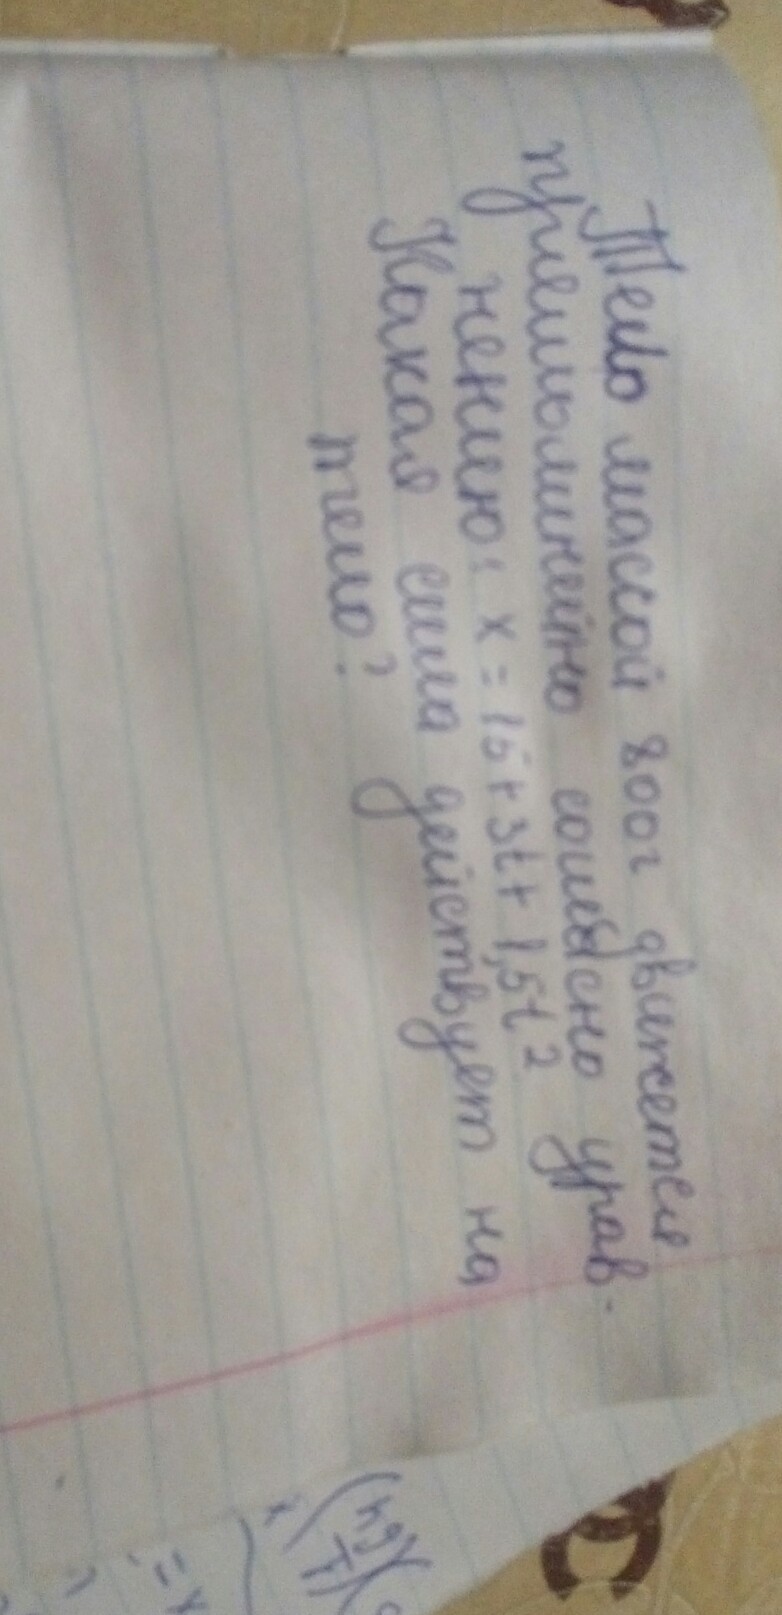 Тело массой 800г движется
прямолинейно согласно урав-
нению: x = 15 + 3t + 1,5t2
Какая сила действует на
тело?